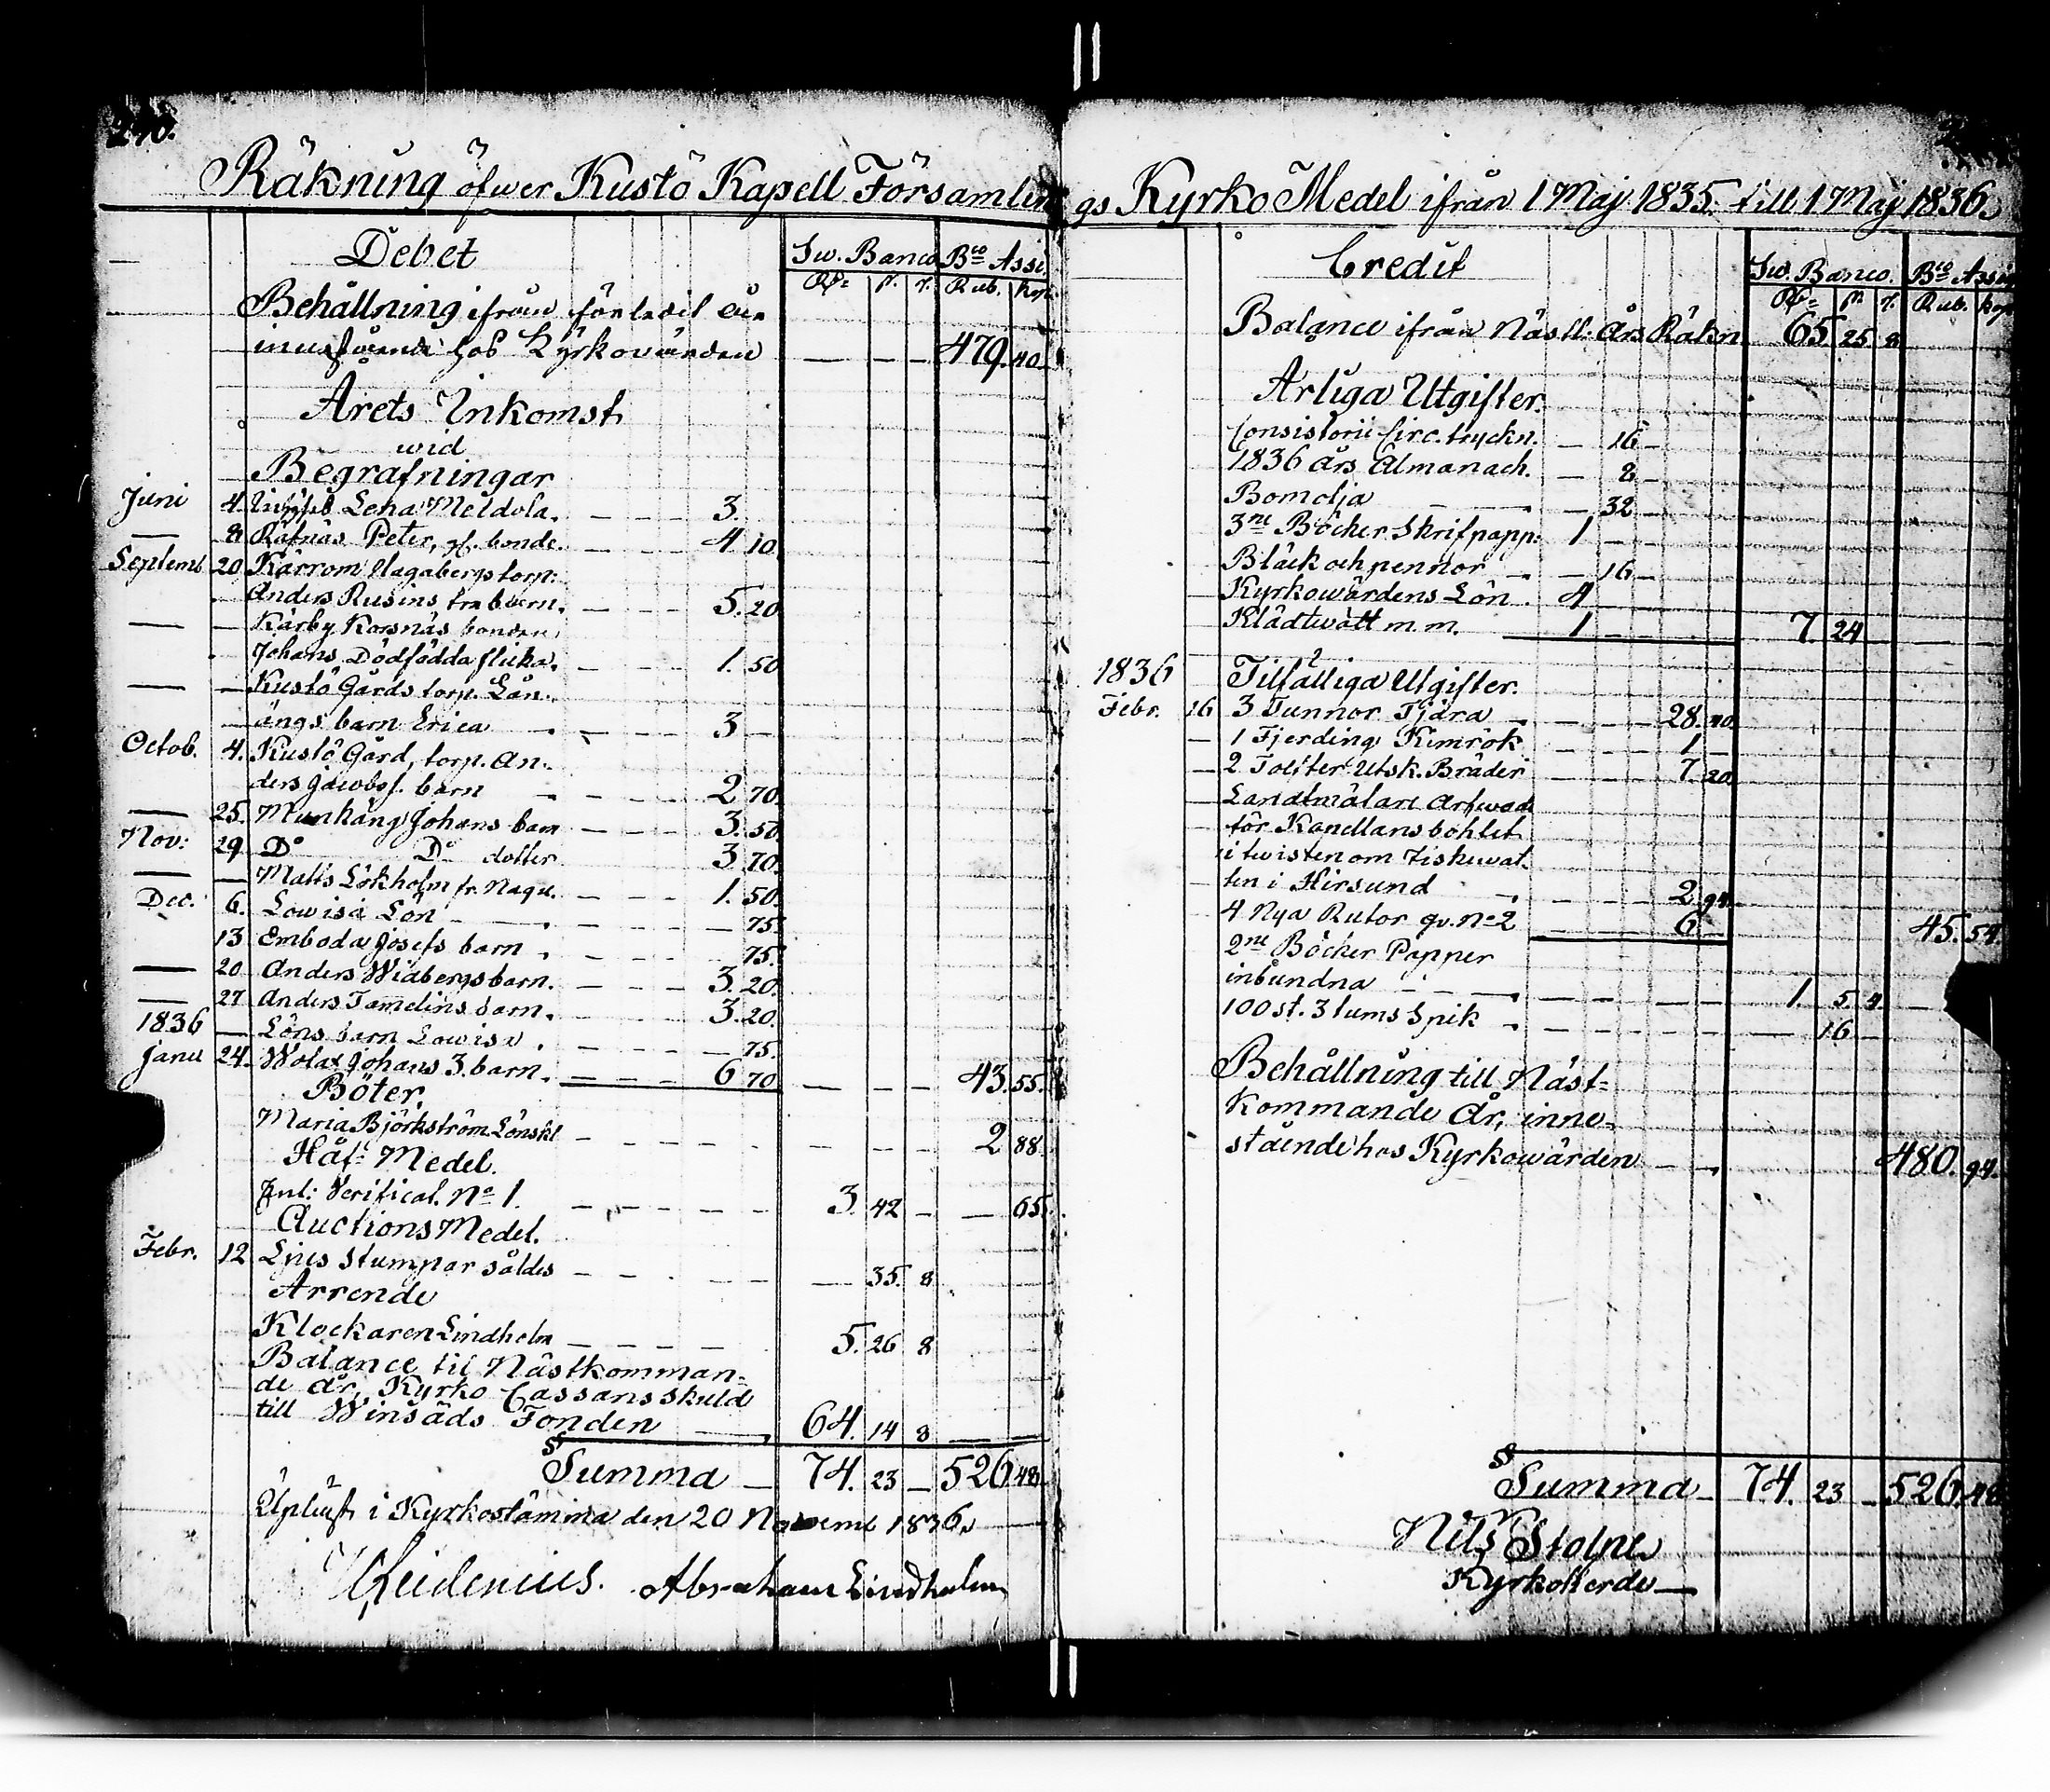 240.
Räkning öfwer Kustö Kapell Församlin
Debet
Sw. Banco Bco Assi.
Rub. Kop.
Behållning ifrån
inestående hos Kyrkovärden — — — 479. 40.
Årets Inkomst
wid
Begrafningar
Juni 4. Lena Meldola. — — — 3.
— 8 Räfnäs Peter, bonde. — — — 4 10
Septemb 20 Kärrom Hagabergs torp:
Anders Rusins barn. — — — 5. 20
— Kärby Korsnäs bonden
Johans, Dödfödda flicka. — — — 1. 50
— — Kustö Gårds torp. Lån.
ängs barn Erica — — — 3 —
Octob. 4. Kustö Gård, torp. An.
ders Jacobss. barn — — — 2 70.
— 25. Munkäng Johans barn — — — 3. 50
Nov: 29 Do Do dotter 3 70.
— — Matts Lökholm fr. Nagu. — — — 1. 50.
Dec. 6. Lowisa Lön — — — 75.
13 Emboda Josefs barn. — — — 75.
— 20 Anders Widbergs barn. — — — 3. 20.
— 27 Anders Tamelins barn. — — — 3. 20.
1836 — Löns barn Lowisa. — — — 75.
Janu 24. Wolax Johans 3. barn. — — — 6 70 — — — 43. 55.
Böter.
Maria Björkström Lönskl — — — 2 88.
Håf- Medel.
Enl: Verificat. No 1. — — — 3. 42 — — 65.
Auctions Medel.
Febr. 12 Ljus stumpar såldes — — — 35. 8
Arrende
Klockaren Lindholm — — — 5. 26 8
Balance til Nästkomman-
de år, Kyrko Cassans skuld
till Winsäds Fonden — 64. 14 8 — —
Summa — 74. 23 — 526. 48.
Upläst i Kyrkostämma den 20 Novemb 1836.
Abraham Lindholm
gs Kyrko Medel ifrån 1 Maj 1835. till 1 Maj 1836.
Credit
Sw. Banco. Bco Assi
Rub. Kop
Balance ifrån Nästl. års Räkn. 65 25. 8
Årliga Utgifter.
Consistorii Circ. tryckn. — 16 —
1836 års Almanach. — 8 —
Bomolja — 32 —
3ne Böcker Skrifpapp: 1 — —
Bläck och pennor — — 16 —
Kyrkowärdens Lön. 4 — —
Klädtwätt m. m. 1 — — 7. 24
1836 Tilfälliga Utgifter.
Febr. 16 3 Tunnor Tjära — — — 28. 40
— 1 Fjerding Kimrök — — — 1 —
— 2 Tolfter Utsk. Bräder — — — 7. 20
— Landtmätare Arfwod
för Kapellans bohlet
i twisten om Fiskewat.
ten i Hirsund — — — 2 94.
4 Nya Rutor qv. No 2 — — — 6 — 45. 54.
2ne Böcker Papper
inbundna — — — 1. 5 4. —
100 st. 3 tums Spik — — — 16 —
Behållning till Näst-
kommande År, inne-
stående hos Kyrkowärden — — 480. 94.
Summa — 74. 23 — 526. 48
Nils Stolpe
Kyrkowerde —